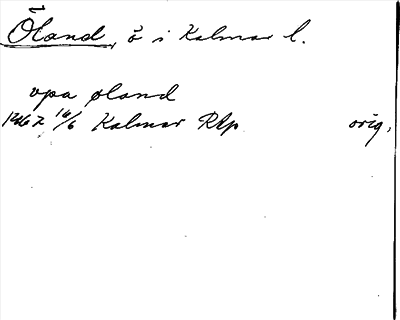 Öland, ö i Kalmar l.
vpa øland
1467 16/6 Kalmar RAp orig.